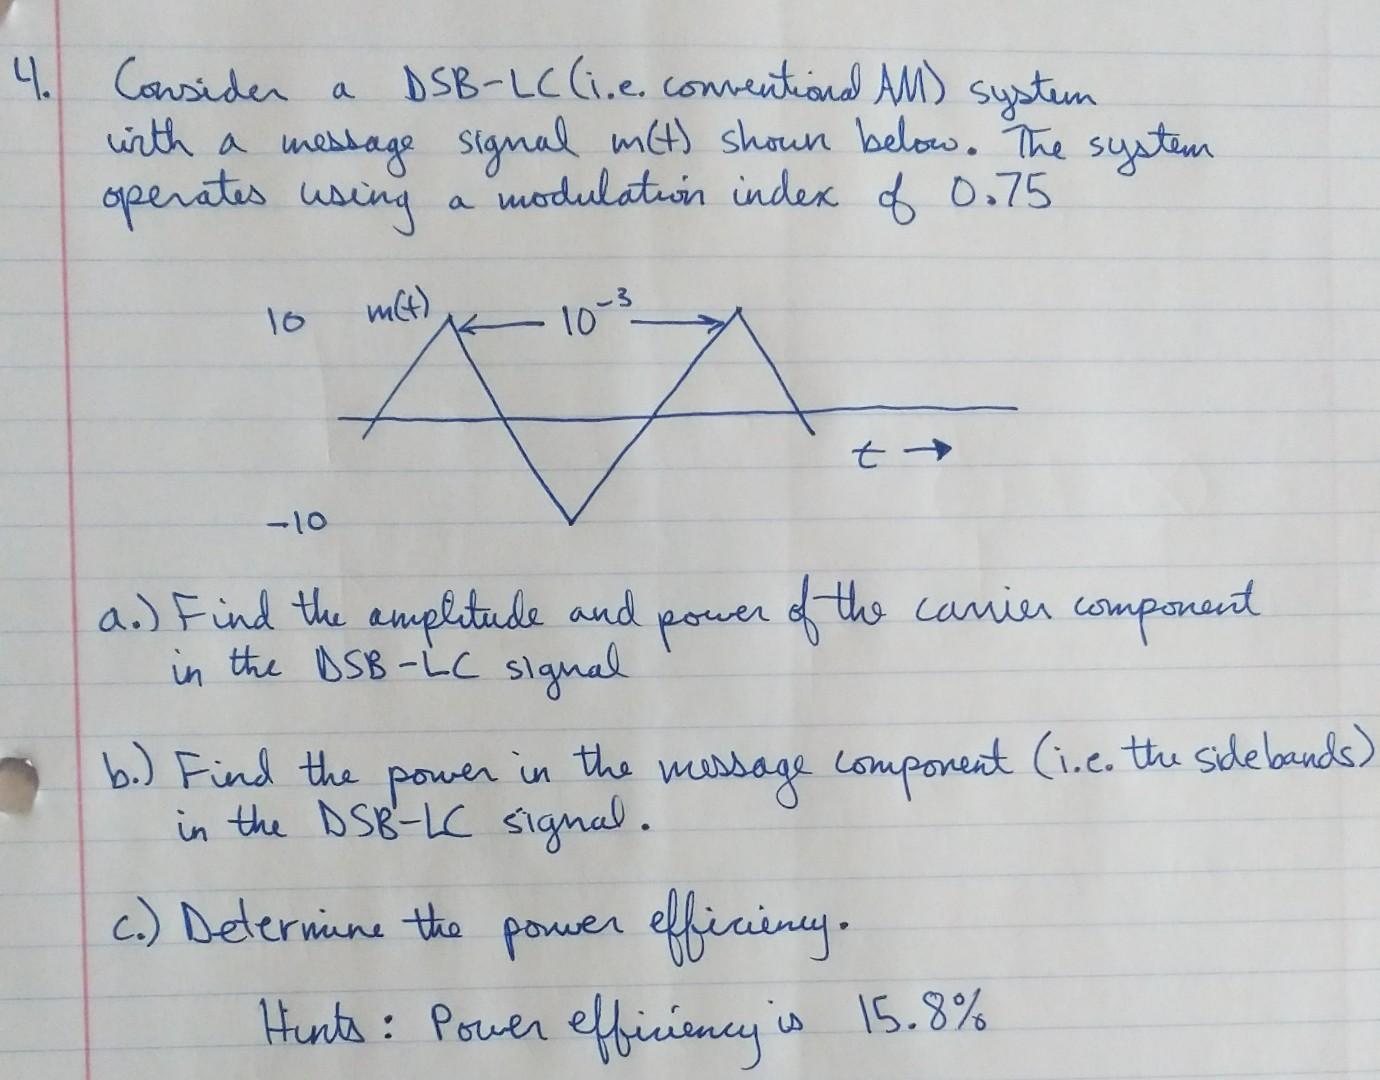 4. Consider a DSB-LC (i.e. conventional AM) system
with a message signal m(t) shown below. The system
operates using a modulation index of 0.75
10 m(t) 10⁻³
t →
-10
a.) Find the amplitude and power of the carrier component
in the DSB-LC signal
b.) Find the power in the message component (i.e. the sidebands)
in the DSB-LC signal.
c.) Determine the power efficiency.
Hints: Power efficiency is 15.8%